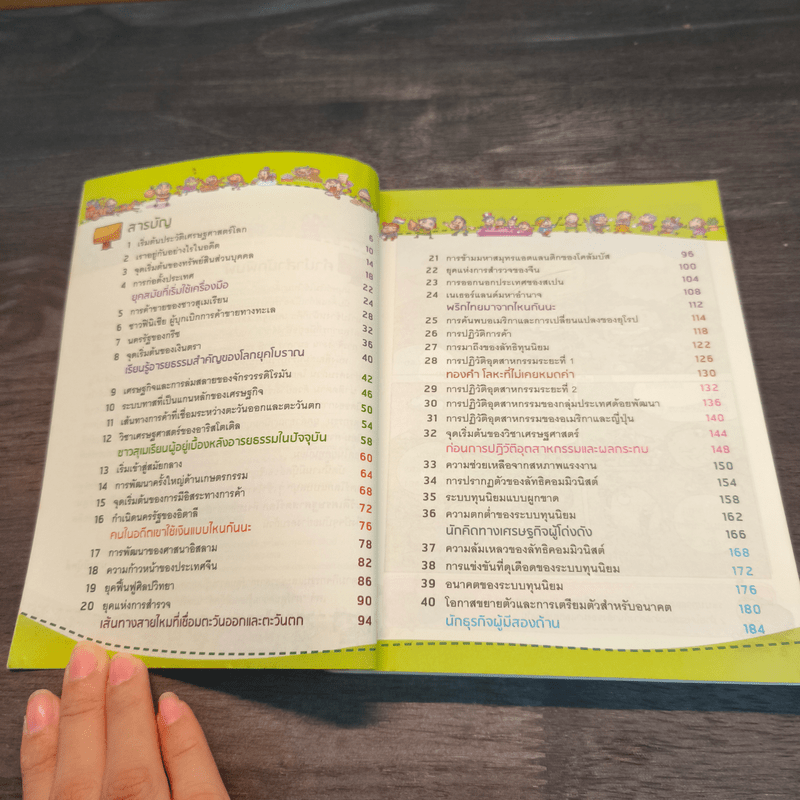 สารบัญ
1 เริ่มต้นประวัติเศรษฐศาสตร์โลก 6
2 เราอยู่กันอย่างไรในอดีต 10
3 จุดเริ่มต้นของทรัพย์สินส่วนบุคคล 14
4 การก่อตั้งประเทศ 18
ยุคสมัยที่เริ่มใช้เครื่องมือ 22
5 การค้าขายของชาวสุเมเรียน 24
6 ชาวฟินิเชีย ผู้บุกเบิกการค้าขายทางทะเล 28
7 นครรัฐของกรีซ 32
8 จุดเริ่มต้นของเงินตรา 36
เรียนรู้อารยธรรมสำคัญของโลกยุคโบราณ 40
9 เศรษฐกิจและการล่มสลายของจักรวรรดิโรมัน 42
10 ระบบทาสที่เป็นแกนหลักของเศรษฐกิจ 46
11 เส้นทางการค้าที่เชื่อมระหว่างตะวันออกและตะวันตก 50
12 วิชาเศรษฐศาสตร์ของอาริสโตเติล 54
ชาวสุเมเรียนผู้อยู่เบื้องหลังอารยธรรมในปัจจุบัน 58
13 เริ่มเข้าสู่สมัยกลาง 60
14 การพัฒนาครั้งใหญ่ด้านเกษตรกรรม 64
15 จุดเริ่มต้นของการมีอิสระทางการค้า 68
16 กำเนิดนครรัฐของอิตาลี 72
คนในอดีตเขาใช้เงินแบบไหนกันนะ 76
17 การพัฒนาของศาสนาอิสลาม 78
18 ความก้าวหน้าของประเทศจีน 82
19 ยุคฟื้นฟูศิลปวิทยา 86
20 ยุคแห่งการสำรวจ 90
เส้นทางสายไหมที่เชื่อมตะวันออกและตะวันตก 94
21 การข้ามมหาสมุทรแอตแลนติกของโคลัมบัส 96
22 ยุคแห่งการสำรวจของจีน 100
23 การออกนอกประเทศของสเปน 104
24 เนเธอร์แลนด์มหาอำนาจ 108
พริกไทยมาจากไหนกันนะ 112
25 การค้นพบอเมริกาและการเปลี่ยนแปลงของยุโรป 114
26 การปฏิวัติการค้า 118
27 การมาถึงของลัทธิทุนนิยม 122
28 การปฏิวัติอุตสาหกรรมระยะที่ 1 126
ทองคำ โลหะที่ไม่เคยหมดค่า 130
29 การปฏิวัติอุตสาหกรรมระยะที่ 2 132
30 การปฏิวัติอุตสาหกรรมของกลุ่มประเทศด้อยพัฒนา 136
31 การปฏิวัติอุตสาหกรรมของอเมริกาและญี่ปุ่น 140
32 จุดเริ่มต้นของวิชาเศรษฐศาสตร์ 144
ก่อนการปฏิวัติอุตสาหกรรมและผลกระทบ 148
33 ความช่วยเหลือจากสหภาพแรงงาน 150
34 การปรากฏตัวของลัทธิคอมมิวนิสต์ 154
35 ระบบทุนนิยมแบบผูกขาด 158
36 ความตกต่ำของระบบทุนนิยม 162
นักคิดทางเศรษฐกิจผู้โด่งดัง 166
37 ความล้มเหลวของลัทธิคอมมิวนิสต์ 168
38 การแข่งขันที่ดุเดือดของระบบทุนนิยม 172
39 อนาคตของระบบทุนนิยม 176
40 โอกาสขยายตัวและการเตรียมตัวสำหรับอนาคต 180
นักธุรกิจผู้มีสองด้าน 184